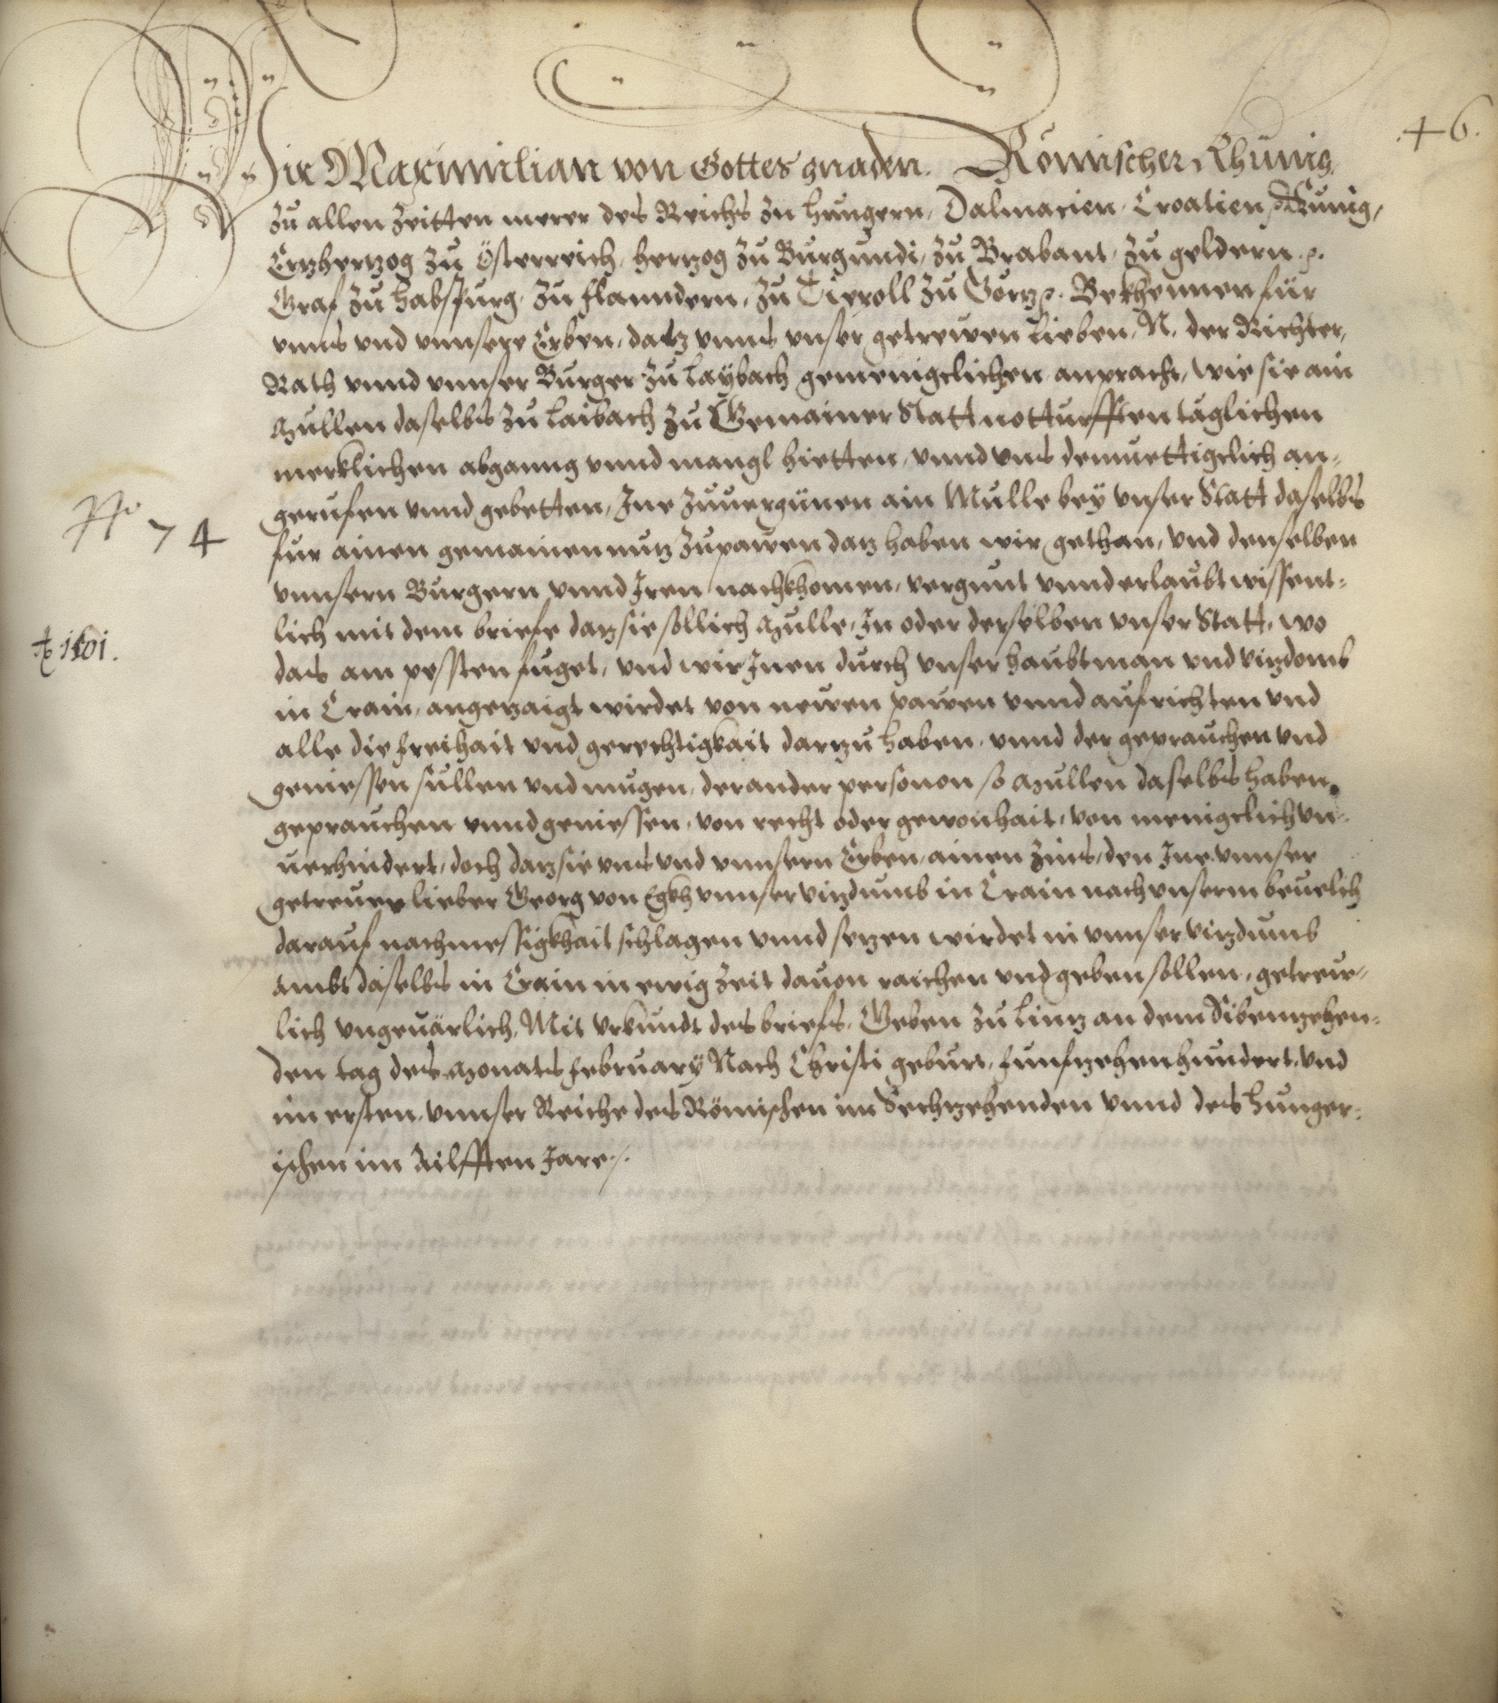 46.
Wir Maximilian von Gottes gnaden. Römischer Khünig,
zu allen Zeitten merer des Reichs zu Hungern, Dalmacien, Croatien ꝛc Kunig,
Ertzhertzog zu Österreich, hertzog zu Burgundi, zu Brabant, zu geldern ꝛc.
Graf zu habspurg, zu flanndern, zu Tieroll zu Görtz ꝛc. Bekhennen für
unns und unnsere Erben, datz unns unser getrewen lieben, N. der Richter,
Rath unnd unnser Burger zu Laybach gemenigclichen anpracht, wie sie ain
Mullen daselbs zu Laibach zu Gemainer Statt notturfften täglichen
merklichen abganng unnd mangl hietten, unnd uns demuettigclich an-
gerufen unnd gebetten, Ine zuuergünen ain Mulle bey unser Statt daselbs
fur ainen gemainen nutz zupawen datz haben wir gethan, und denselben
unnsern Burgern unnd Iren nachkhomen, vergunt unnd erlaubt wissent-
lich mit dem briefe datz sie sollich Mulle, In oder derselben unser Statt, wo
das am pessten fuget, und wir Inen durch unser haubtman und vitzdomb
in Crain, angetzaigt wirdet von newen pawen unnd aufrichten und
alle die freihait und gerechtigkait dartzu haben, unnd der geprauchen und
geniessen sullen und mugen, der ander personon so Mullen daselbs haben
geprauchen unnd geniessen, von recht oder gewonhait, von menigclich un-
uerhindert, doch datz sie uns und unnsern Erben, ainen Zins, den Ine unnser
getreuer lieber Georg von Egkh unnser vitzdumb in Crain nach unserm beuelch
darauf nachmessigkhait schlagen unnd setzen wirdet in unnser vitzdumb
ambt daselbs in Crain in ewig Zeit dauon raichen und geben sollen, getreu-
lich ungeuärlich, Mit urkundt des briefs, Geben zu Linntz an dem Sibentzehen-
den tag des Monats february Nach Christi geburt, funftzehenhundert und
im ersten, unnser Reiche des Römischen im Sechtzehenden unnd des hunger-
ischen im Ailfften Jare ꝛc.
No 74
1501.